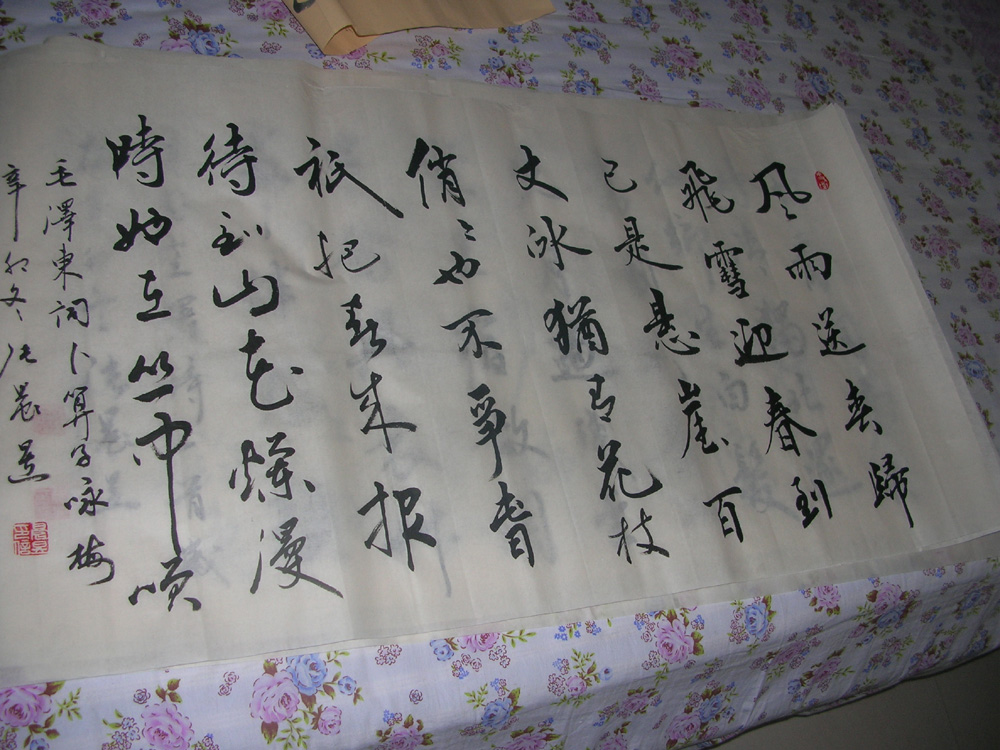 風雨送春歸
飛雪迎春到
已是悬崖百
丈冰猶有花枝
俏〻也不爭春
祇把春来報
待到山花爛漫
時她在丛中咲
毛澤東詞卜算子咏梅
辛卯冬张晨